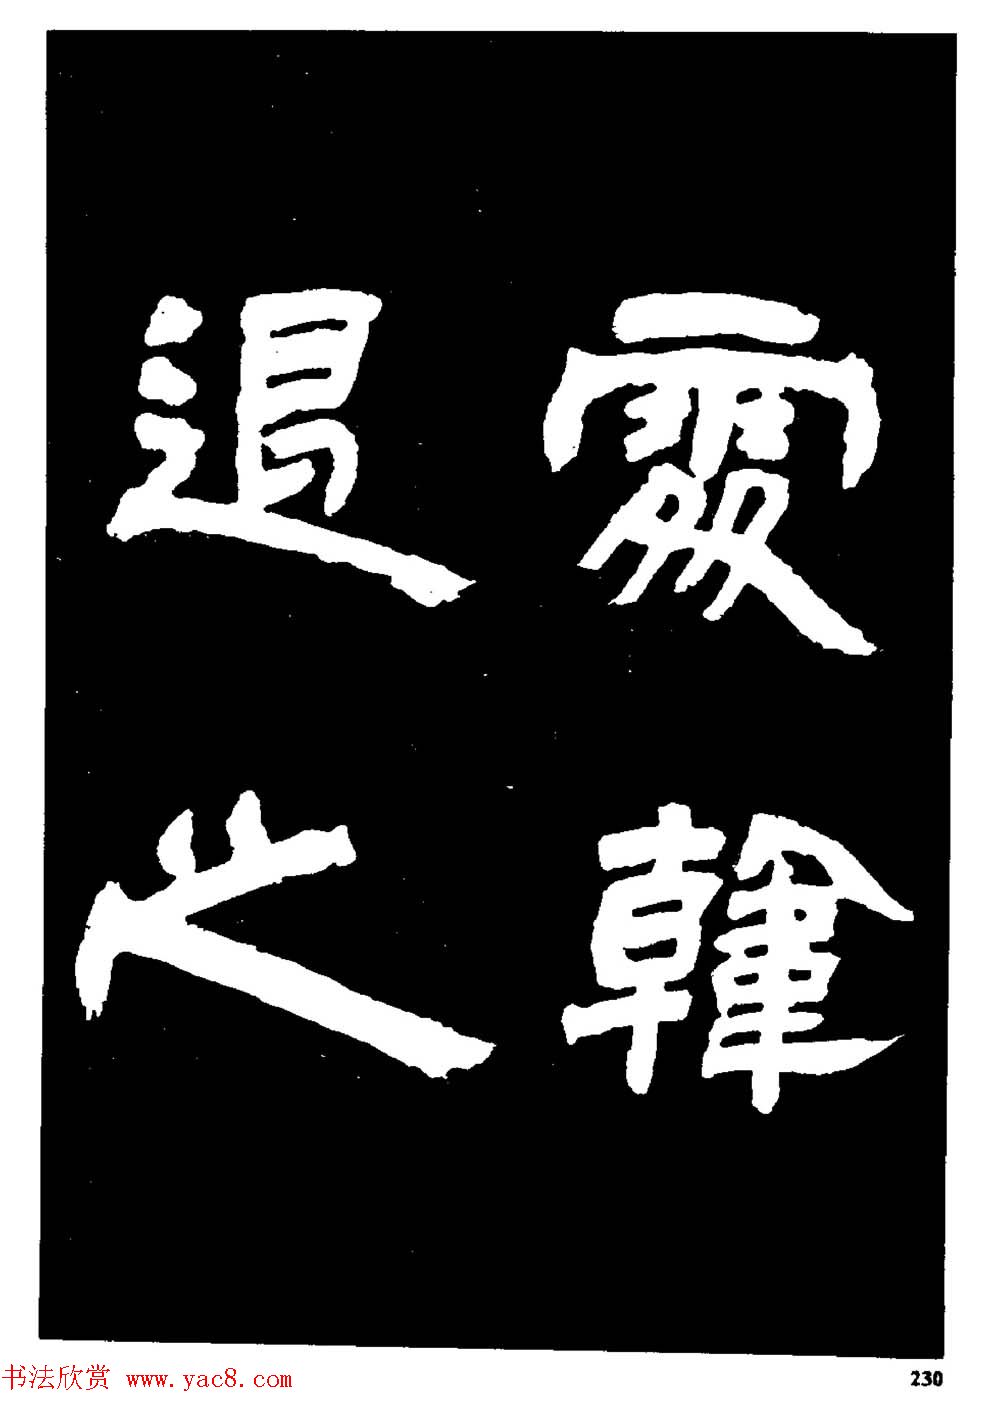 韓
退之
230
书法欣赏 www.yac8.com